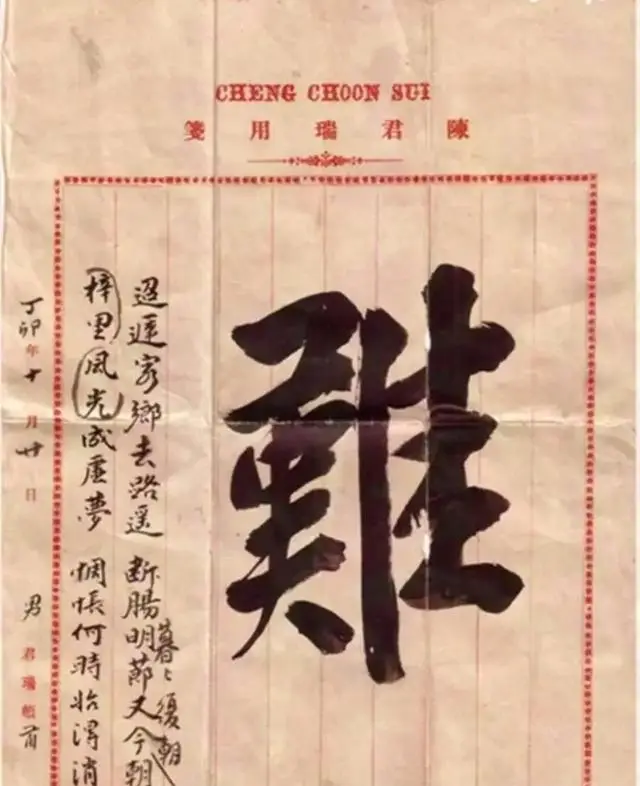 CHENG CHOON SUI
陳君瑞用箋
難
暮〻復朝
迢遞家鄉去路遥 断腸明節又今朝
梓里風光成虚夢 惆悵何時始淂消
丁卯年十月廿日 男 君瑞